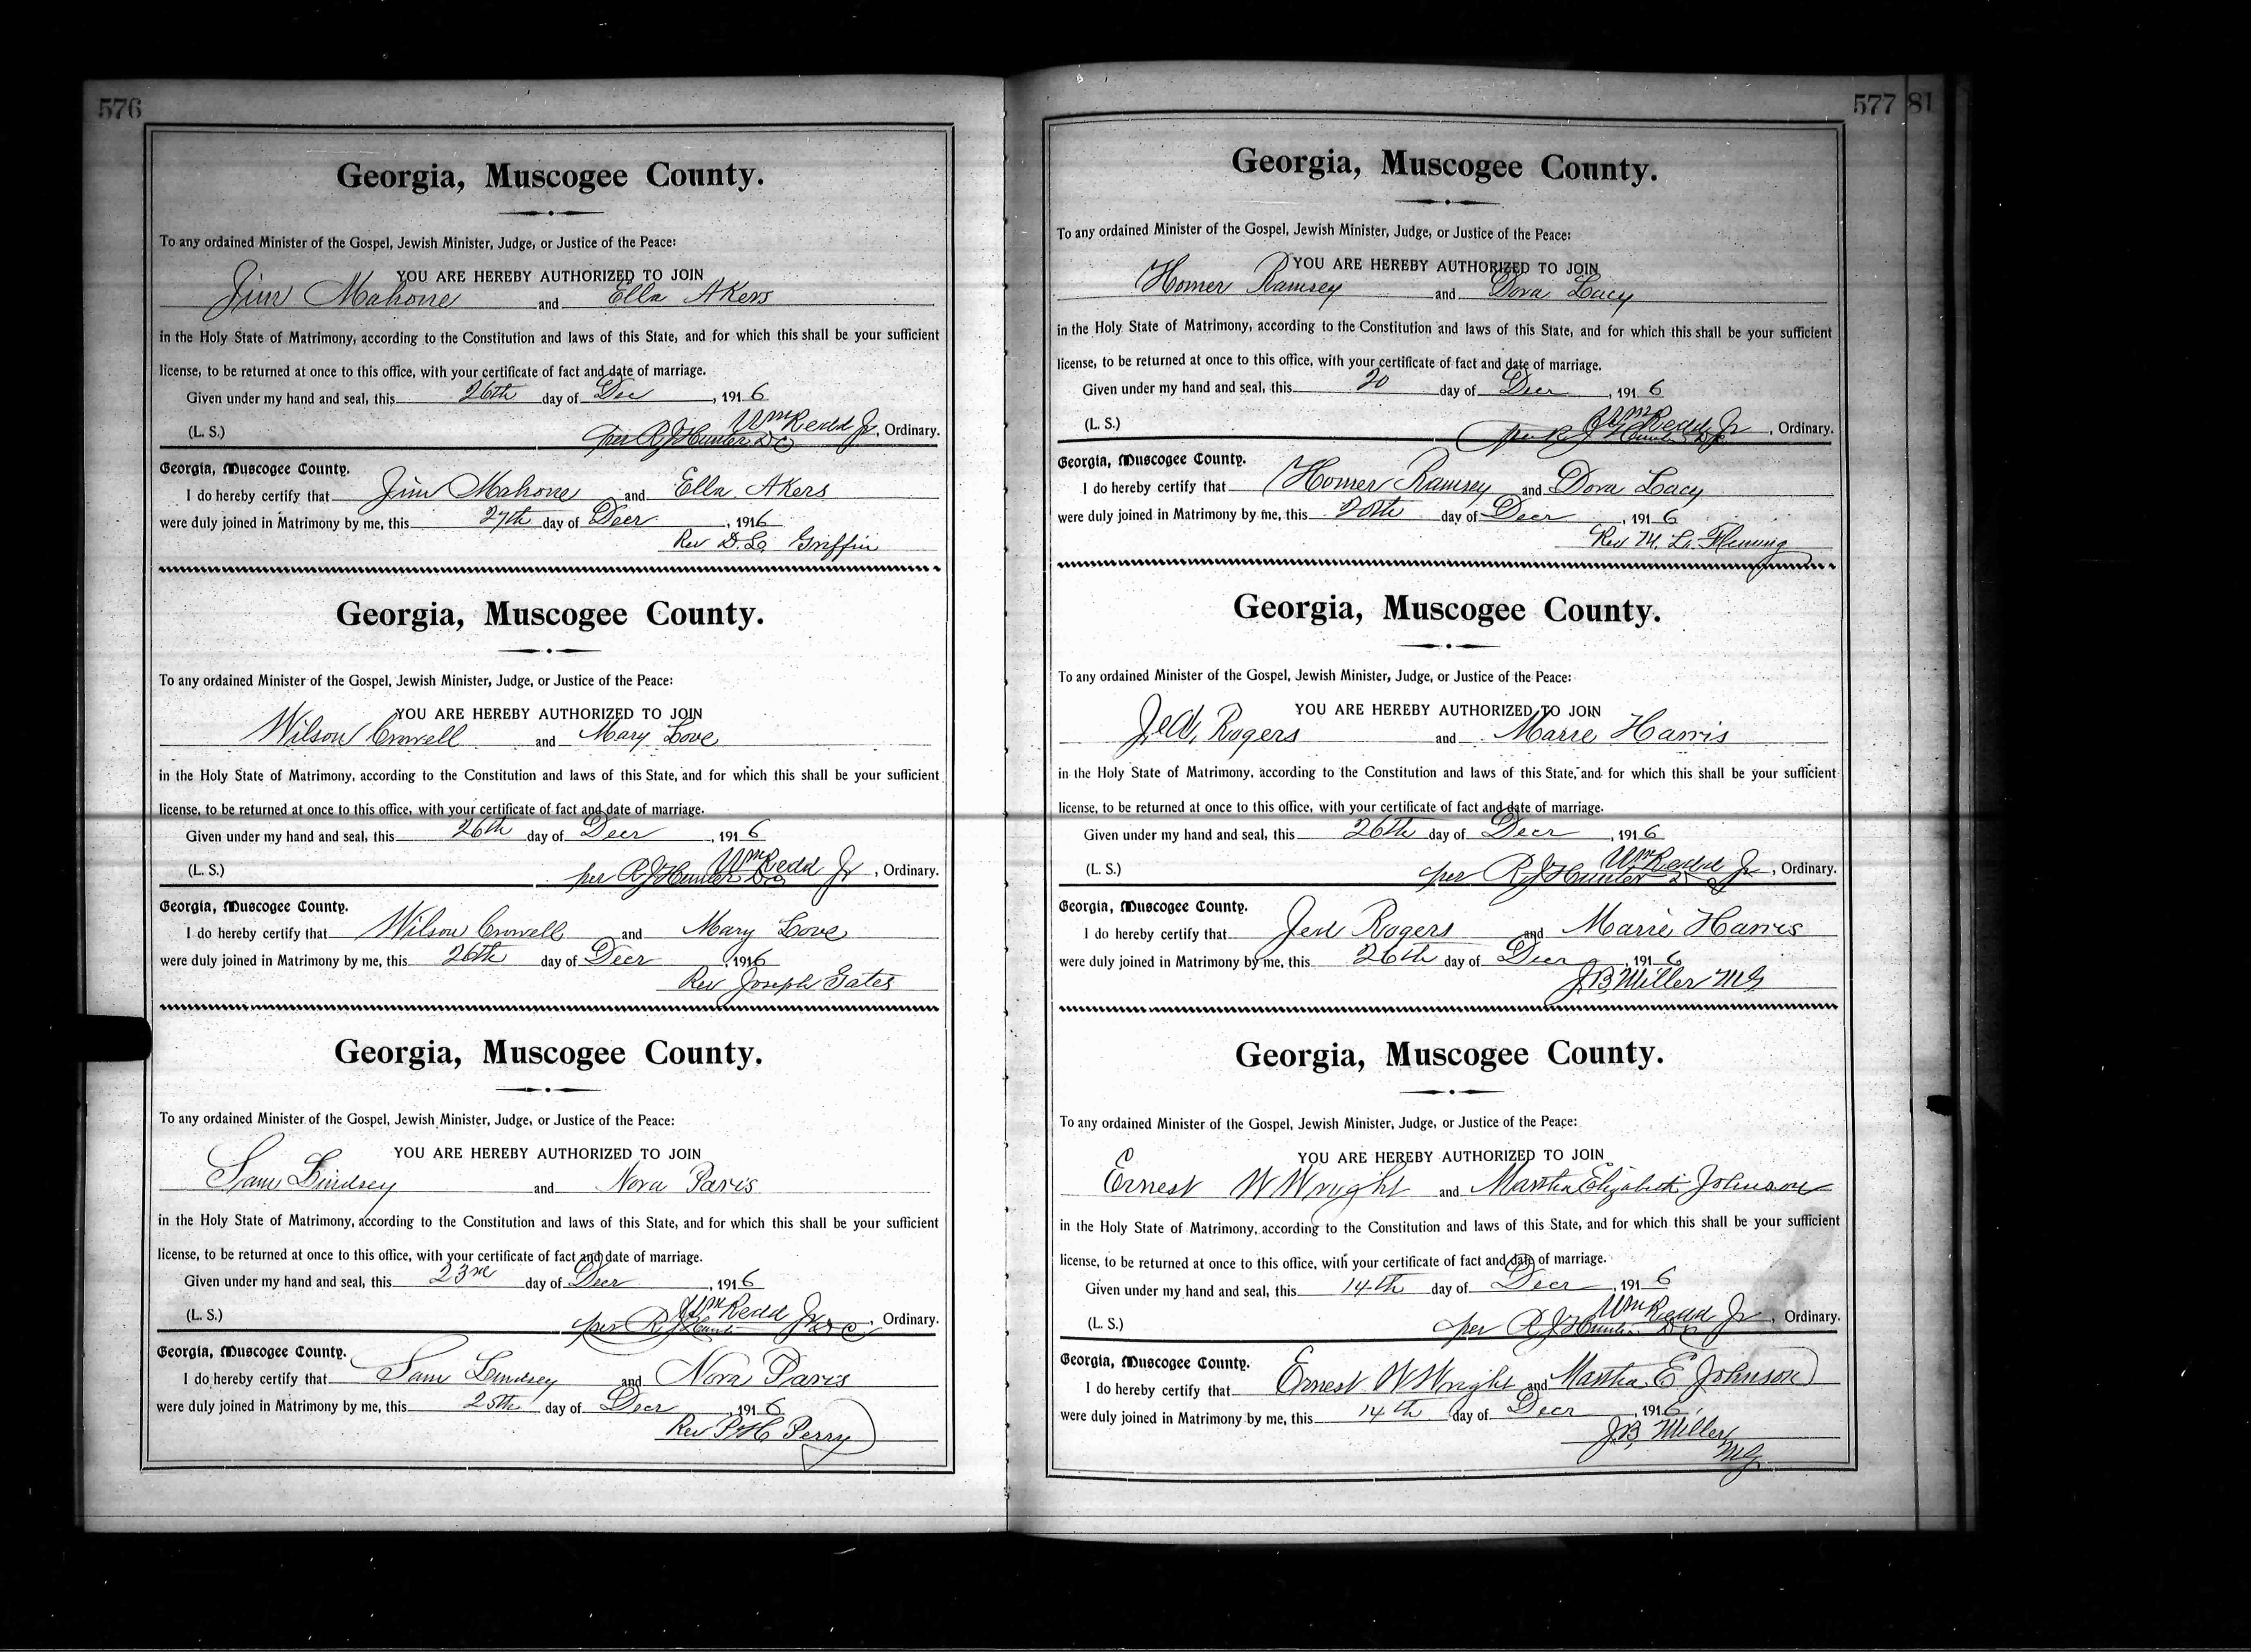 576
Georgia, Muscogee County.
To any ordained Minister of the Gospel, Jewish Minister, Judge, or Justice of the Peace:
YOU ARE HEREBY AUTHORIZED TO JOIN
Jim Mahone and Ella Akers
in the Holy State of Matrimony, according to the Constitution and laws of this State, and for which this shall be your sufficient
license, to be returned at once to this office, with your certificate of fact and date of marriage.
Given under my hand and seal, this 26th day of Dec, 1916
(L. S.) Wm Redd Jr, Ordinary.
per R J Hunter DC
Georgia, Muscogee County.
I do hereby certify that Jim Mahone and Ella Akers
were duly joined in Matrimony by me, this 27th day of Decr, 1916
Rev D. L. Griffin
Georgia, Muscogee County.
To any ordained Minister of the Gospel, Jewish Minister, Judge, or Justice of the Peace:
YOU ARE HEREBY AUTHORIZED TO JOIN
Wilson Crowell and Mary Love
in the Holy State of Matrimony, according to the Constitution and laws of this State, and for which this shall be your sufficient
license, to be returned at once to this office, with your certificate of fact and date of marriage.
Given under my hand and seal, this 26th day of Decr, 1916
(L. S.) Wm Redd Jr, Ordinary.
per R J Hunter DC
Georgia, Muscogee County.
I do hereby certify that Wilson Crowell and Mary Love
were duly joined in Matrimony by me, this 26th day of Decr, 1916
Rev Joseph Gates
Georgia, Muscogee County.
To any ordained Minister of the Gospel, Jewish Minister, Judge, or Justice of the Peace:
YOU ARE HEREBY AUTHORIZED TO JOIN
Sam Lindsey and Nora Paris
in the Holy State of Matrimony, according to the Constitution and laws of this State, and for which this shall be your sufficient
license, to be returned at once to this office, with your certificate of fact and date of marriage.
Given under my hand and seal, this 23rd day of Decr, 1916
(L. S.) Wm Redd Jr, Ordinary.
per R J Hunter DC
Georgia, Muscogee County.
I do hereby certify that Sam Lindsey and Nora Paris
were duly joined in Matrimony by me, this 25th day of Decr, 1916
Rev P H Perry
577 81
Georgia, Muscogee County.
To any ordained Minister of the Gospel, Jewish Minister, Judge, or Justice of the Peace:
YOU ARE HEREBY AUTHORIZED TO JOIN
Homer Ramsey and Dora Lacy
in the Holy State of Matrimony, according to the Constitution and laws of this State, and for which this shall be your sufficient
license, to be returned at once to this office, with your certificate of fact and date of marriage.
Given under my hand and seal, this 20 day of Decr, 1916
(L. S.) Wm Redd Jr, Ordinary.
per R J Hunter
Georgia, Muscogee County.
I do hereby certify that Homer Ramsey and Dora Lacy
were duly joined in Matrimony by me, this 20th day of Decr, 1916
Rev M. L. Fleming
Georgia, Muscogee County.
To any ordained Minister of the Gospel, Jewish Minister, Judge, or Justice of the Peace:
YOU ARE HEREBY AUTHORIZED TO JOIN
Jed Rogers and Marie Harris
in the Holy State of Matrimony, according to the Constitution and laws of this State, and for which this shall be your sufficient
license, to be returned at once to this office, with your certificate of fact and date of marriage.
Given under my hand and seal, this 26th day of Decr, 1916
(L. S.) Wm Redd Jr, Ordinary.
per R J Hunter DC
Georgia, Muscogee County.
I do hereby certify that Jed Rogers and Marie Harris
were duly joined in Matrimony by me, this 26th day of Decr, 1916
J.B. Miller MG
Georgia, Muscogee County.
To any ordained Minister of the Gospel, Jewish Minister, Judge, or Justice of the Peace:
YOU ARE HEREBY AUTHORIZED TO JOIN
Ernest W Wright and Martha Elizabeth Johnson
in the Holy State of Matrimony, according to the Constitution and laws of this State, and for which this shall be your sufficient
license, to be returned at once to this office, with your certificate of fact and date of marriage.
Given under my hand and seal, this 14th day of Decr, 1916
(L. S.) Wm Redd Jr, Ordinary.
per R J Hunter DC
Georgia, Muscogee County.
I do hereby certify that Ernest W Wright and Martha E Johnson
were duly joined in Matrimony by me, this 14th day of Decr, 1916
J.B. Miller
MG